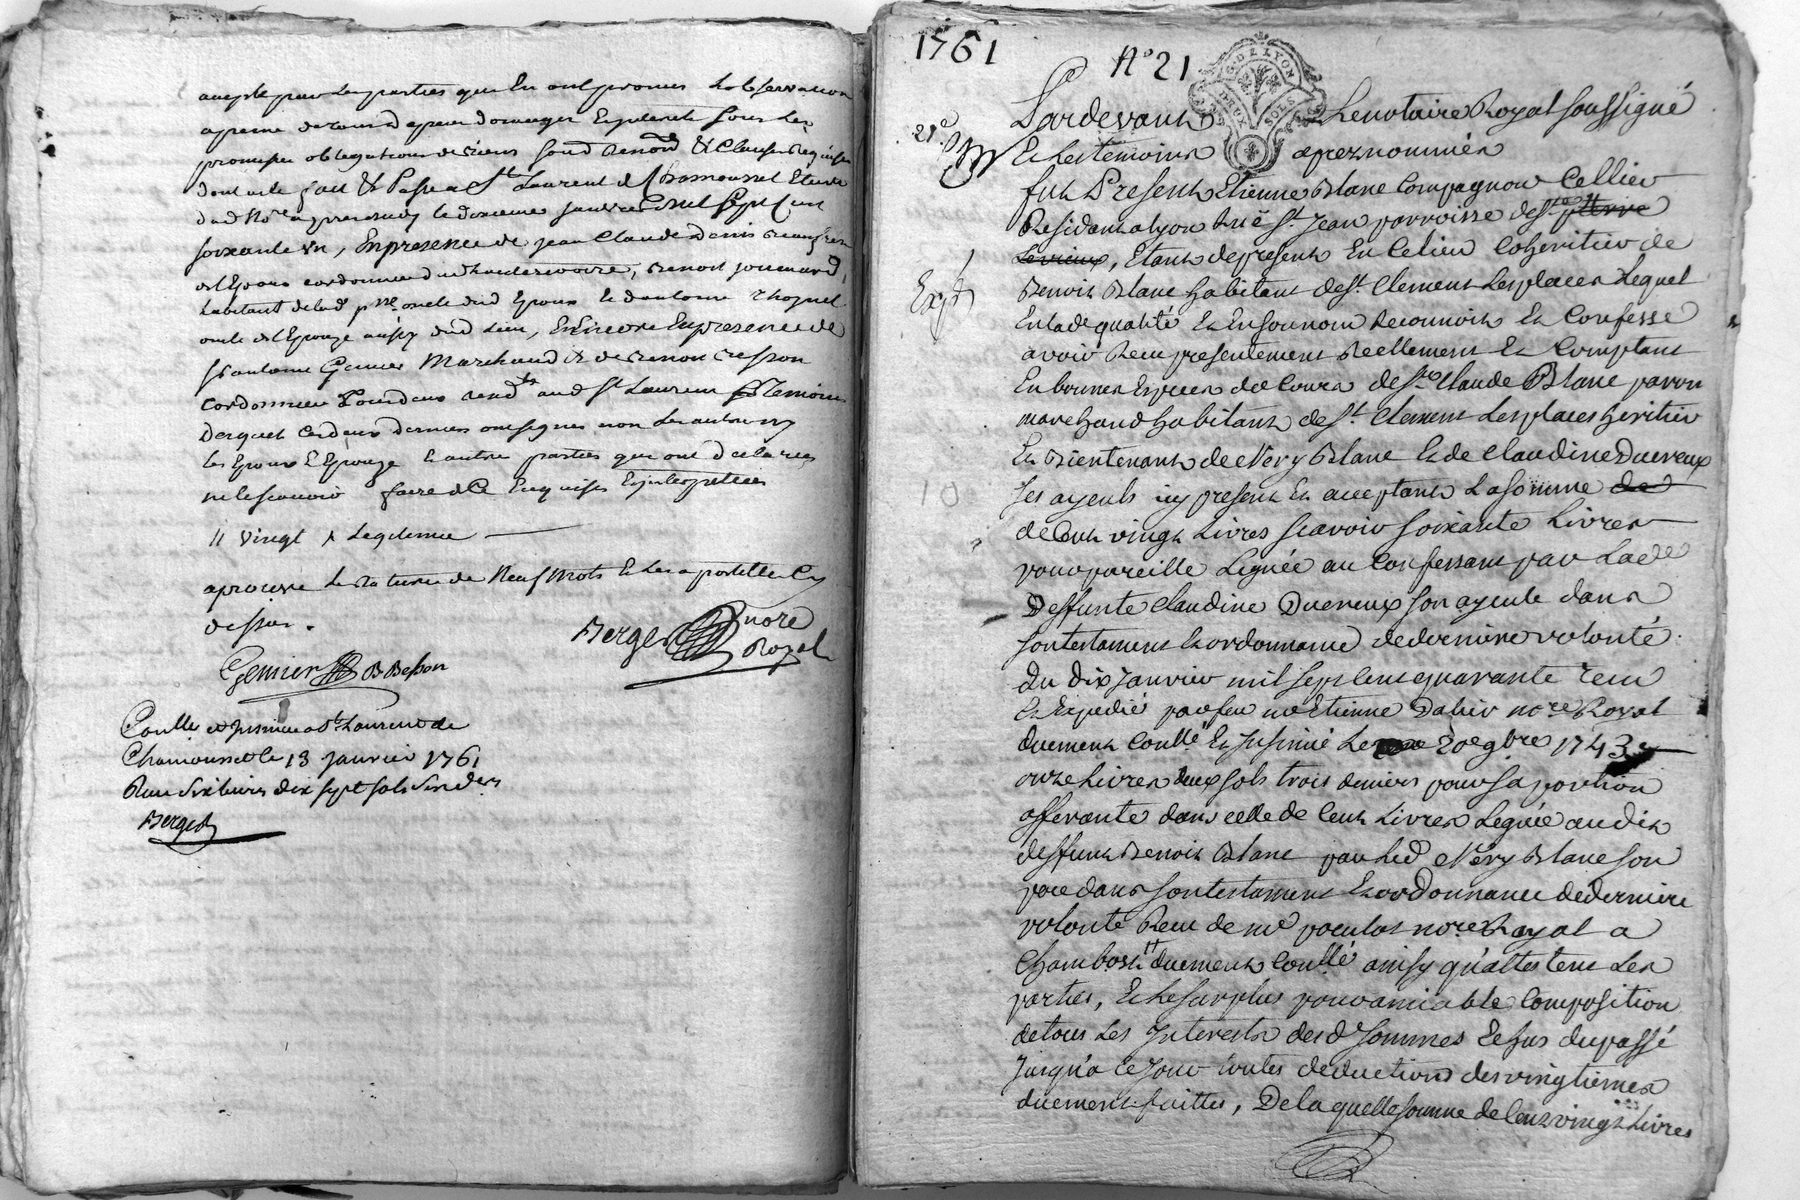 accepté par les parties qui En ont promis Lobservation
a peine de tous depens domages
promises obligations de biens soumd renond & Clauses requises
dont acte fait & Passé a St Laurent de Chamousset Etude
dud Nore apres midy le douzieme janvier mil Sept Cent
soixante Un, En presence de jean Claude Denis
cordonnier, Benoit
habitant de lad psse oncle dud Epoux & d'antoine
oncle de l'Epouze aussy dud Lieu, Et Encore En presence de
Sr antoine Genier Marchand & de Benoit Besson
cordonnier tous deux resdts aud St Laurent Temoins
Desquels Ces deux derniers ont signés non Les autres ny
les Epoux & Epouze & autres parties qui ont declarées
ne le scavoir faire de Ce Enquises & interpellées
// vingt
aprouvé La rature de Neuf mots & Les apostilles Cy
dessus.
Berger nore
Royal
Genier B Besson
Conllé et Insinué a St Laurent de
Chamousset le 13 janvier 1761
Recu Six livres dix sept sols Six ders
Berger
1761
No 21
G. DE LYON
DEUX SOLS
21e
Pardevant Le notaire Royal Soussigné
Et Les temoins apres nommés
fut Present Etienne Blanc Compagnon Cellier
Residant a Lyon Ruë St. Jean parroisse de Ste pierre
Le vieux, Etant de present En Ce lieu Coheritier de
Expd
Benoit Blanc habitant de St. Clement Lesplaces Lequel
En lade qualité Et En Son nom Reconnoit Et Confesse
avoir Receu presentement Reellement Et Comptant
En bonnes Especes de Cours de Sr Claude Blanc
marchand habitant de St. Clement Lesplaces heritier
Et Bientenant de Nery Blanc Et de Claudine Duereux
10
Ses ayeuls icy present Et acceptant La somme de
de Cent vingt Livres Scavoir Soixante Livres
pour pareille Leguée au Confessant par Lade
Deffunte Claudine Duereux Son ayeule dans
Son testament Et ordonnance de derniere volonté
du Dix Janvier mil Sept Cent quarante Receu
Et Expedié par feu me Etienne Dalier nore Royal
duement Conllé Et Insinué Le 20e 9bre 1743
onze Livres deux Sols trois deniers pour Sa portion
afferante dans celle de Cent Livres Leguée audit
deffunt Benoit Blanc par Led Nery Blanc Son
pere dans Son testament Et ordonnance de derniere
volonté Receu de me nore Royal a
Chambost duement Conllé ainsy qu'attestent Les
parties, Et Le Surplus pour amiable Composition
de tous Les Interests desd Sommes Echus du passé
jusqu'a Ce Jour toutes deductions des vingtiemes
duement faittes, De laquelle somme de Cent vingt Livres